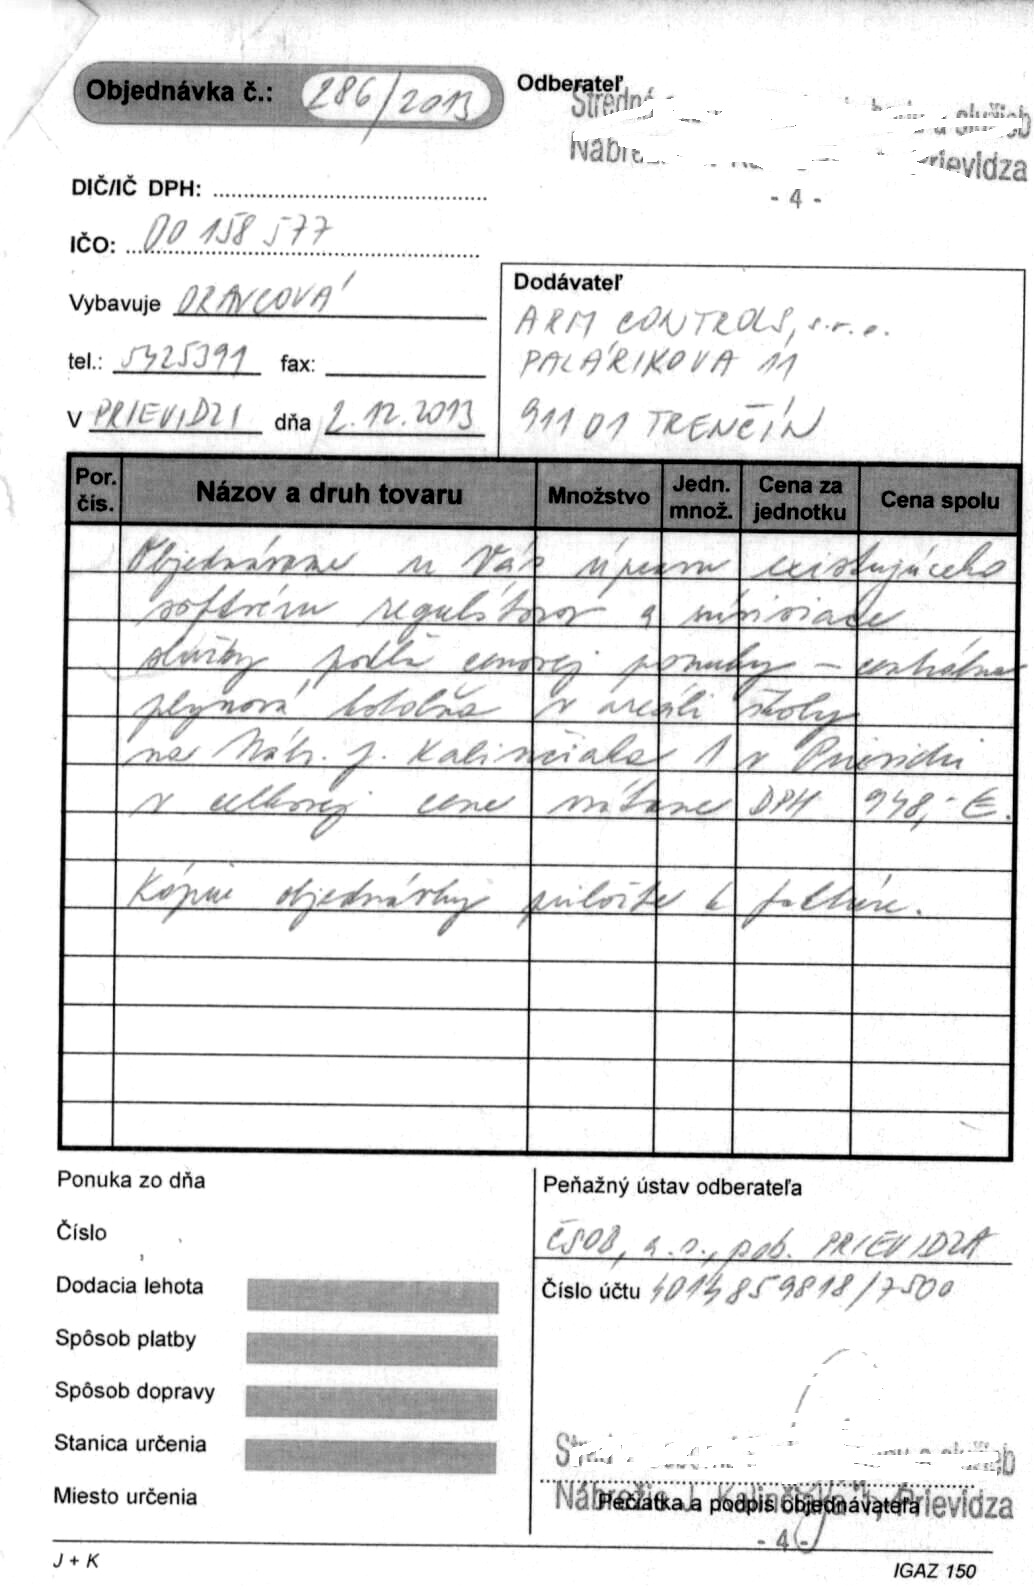 Objednávka č.: 286/2013
Odberateľ
Stredná služieb
Nábrežie Prievidza
- 4 -
DIČ/IČ DPH:
IČO: 00 158 577
Vybavuje ORAVCOVÁ
tel.: 5425391 fax:
V PRIEVIDZI dňa 2.12.2013
Dodávateľ
ARM CONTROLS, s.r.o.
PALÁRIKOVA 11
911 01 TRENČÍN
Por. čís. Názov a druh tovaru Množstvo Jedn. množ. Cena za jednotku Cena spolu
Objednávame u Vás úpravu existujúceho
softvéru regulátorov a súvisiace
služby podľa cenovej ponuky - centrálna
plynová kotolňa v areáli školy
na Nábr. J. Kalinčiaka 1 v Prievidzi
v celkovej cene vrátane DPH 948,- €.
Kópiu objednávky priložte k faktúre.
Ponuka zo dňa
Číslo
Dodacia lehota
Spôsob platby
Spôsob dopravy
Stanica určenia
Miesto určenia
Peňažný ústav odberateľa
ČSOB, a.s., pob. PRIEVIDZA
Číslo účtu 4014859818/7500
služieb
Nábrežie J. Kalinčiaka, Prievidza
Pečiatka a podpis objednávateľa
- 4 -
J + K
IGAZ 150